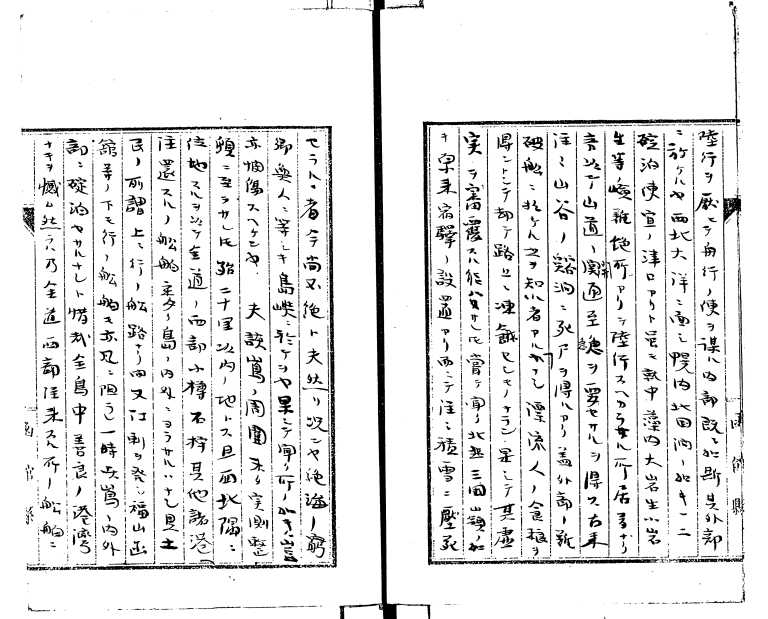 陸行ヲ厭ヒテ舟行ノ便ヲ謀ル内部既ニ如斯其外部
ニ於ケルヤ西北大洋ニ面シ幌内北国澗ノ如キ一二
碇泊便宜ノ津口アリト雖モ就中藻内大岩生小岩
生等ノ嶮難絶所アリテ陸行スヘカラサル所居多ナリ
言以テ山道ノ開通至急ヲ要セサルヲ得ス古来
往々山谷ノ谿洞ニ死アヲ得ルアリ蓋外部ノ新
破船ニ於ケル之ヲ知ル者アルナク漂流人ノ食糧ヲ
得ントシテ却テ路上ニ凍餓セシモノナラン是シテ其虚
実ヲ審覈スル能ハサルモ嘗テ聞ク北越三国ノ嶺ノ如
キ早来宿驛ノ設置アリ而シテ往々積雪ニ壓死
セラルヽ者今尚不絶ト夫然リ況ンヤ絶海ノ窮
郷無人ニ等シキ島嶼ニ於ケルヤ果シテ聞ク所ノ如キハ豈
亦悃傷スヘケンヤ 夫該島ノ周圍未タ実測整
頓ニ至ラサルモ殆二十里以内ノ地トス且西北隅ニ
位地スルヲ以テ全道ノ西部小樽石狩其他諸港
往還スルノ船舶完ク島ノ内外ニヨラサルハナシ是土
民ノ所謂上ニ行ノ船路ナリ而又江刺ヲ発シ福山函
館等ノ下モ行ノ船舶モ亦風ニ阻ラレ一時此島ノ内外
部ニ碇泊セサルナシト惜哉全島中善良ノ港湾
ナキヲ憾ム然ラハ乃全道西部往来スル所ノ船舶ニ
函館縣
函館縣